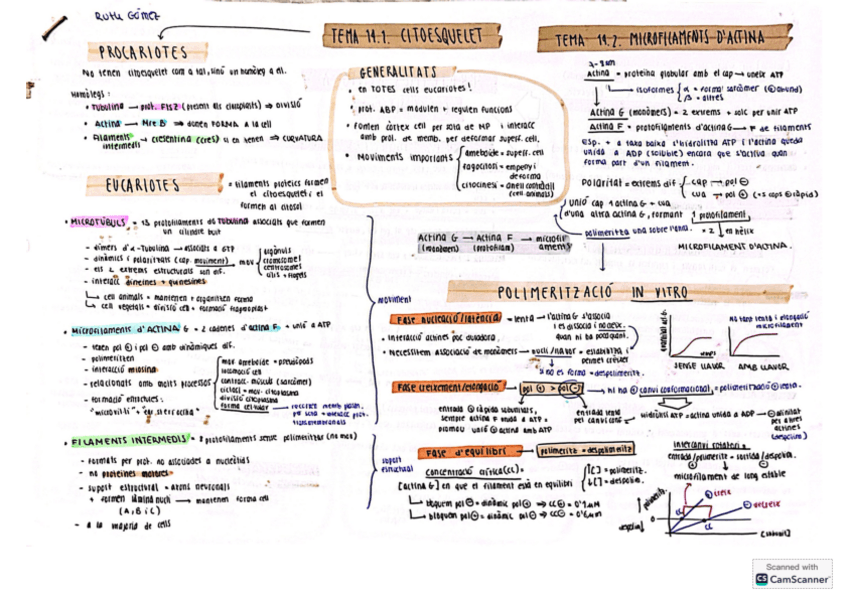 Ruth Gómez
TEMA 14.1. CITOESQUELET
PROCARIOTES
No tenen citoesquelet com a tal, sinó un homòleg a ell.
Homòlegs:
• Tubulina → prot. FtsZ → DIVISIÓ
• Actina → MreB → donen FORMA a la cel
• Filaments intermedis → crescentina (cres) → CURVATURA
GENERALITATS
• en TOTES cells eucariotes!
• prot. ABP = modulen + regulen funcions
• Formen còrtex cel per sota de MP i interacc
amb prot. de memb. per deformar superf. cel.
• Moviments importants
ameboide = superf. cel
fagocitosi = empeny i deforma
citocinesi = anell contràctil (cel animals)
EUCARIOTES
= filaments proteics formen
el citoesquelet i el
formen al citosol
• MICROTÚBULS = 13 protofilaments de tubulina associats que formen
un cilindre buit
- dímers d'α-Tubulina → associats a GTP
- dinàmics i polaritzats (cap. moviment)
- els 2 extrems estructurals són dif.
- interacc dineïnes + quinesines
mov
orgànuls
cromosomes
centrosomes
cilis + flagels
cel animals = mantenen + organitzen forma
cel vegetals = divisió cel = formació fragmoplast
• Microfilaments d'ACTINA G = 2 cadenes d'actina F + unió a ATP
- tenen pol ⊕ i pol ⊖ amb dinàmiques dif.
- polimeritzen
- interacció miosina
- relacionats amb molts processos
- formació estructures:
mov ameboide = pseudòpods
locomoció cel
contracc. múscul (sarcòmer)
ciclosi = mov. citoplasma
divisió citoplasma
forma cel·lular
• FILAMENTS INTERMEDIS = 8 protofilaments sense polimeritzar (no mov)
- formats per prot. no associades a nucleòtids
- no proteïnes motores
- suport estructural = axons neuronals
+ formen làmina nucli → mantenen forma cel
(A, B i C)
- a la majoria de cells
moviment
suport estructural
TEMA 14.2. MICROFILAMENTS D'ACTINA
7-9nm
Actina = proteïna globular amb el cap → uneix ATP
isoformes
α = forma sarcòmer
β = altres
Actina G (monòmers) = 2 extrems + solc per unir ATP
Actina F = protofilaments d'actina G → F de filaments
esp. + a taxa baixa l'hidrolitza ATP i l'actina queda
unida a ADP (soluble) encara que s'activa quan
forma part d'un filament.
Polaritat = extrems dif
cap → pol ⊖
cua → pol ⊕
unió cap 1 actina G + cua
d'una altra actina G, formant 1 protofilament
polimeritza una sobre l'altra.
= 2 en hèlix
MICROFILAMENT D'ACTINA.
Actina G → Actina F → microfilaments
(monòmer) (protofilam)
POLIMERITZACIÓ IN VITRO
FASE nucleació/latència → lenta → l'actina G s'associa
i es dissocia i no creix.
• interacció actines poc duradora,
• Necessitem associació de monòmers → nucli/llavor = estabilitza i
permet créixer
si no es forma = despolimeritz.
No tan lenta l'elongació
microfilament
SENSE LLAVOR
AMB LLAVOR
FASE creixement/elongació → pol ⊕ > pol ⊖ → hi ha canvi conformacional = polimerització ⊖ lenta.
entrada ⊕ ràpida subunitats,
sempre actina F unida a ATP =
promou unió ⊕ actina amb ATP
entrada lenta
pel canvi conf
hidròlisi ATP = actina unida a ADP
FASE d'equilibri → polimeritz = despolimeritz
concentració crítica (cc) =
[actina G] en que el filament està en equilibri
↑[ ] = polimeritz.
↓[ ] = despolim.
bloquem pol ⊖ = dinàmic pol ⊕ ⇒ CC⊕ = 0'1 μM
bloquem pol ⊕ = dinàmic pol ⊖ ⇒ CC⊖ = 0'6 μM
Intercanvi rotatori =
entrada/polimeritz = sortida/despolim.
microfilament de long estable
⊕ creix
⊖ decreix
cc
Scanned with
CS CamScanner